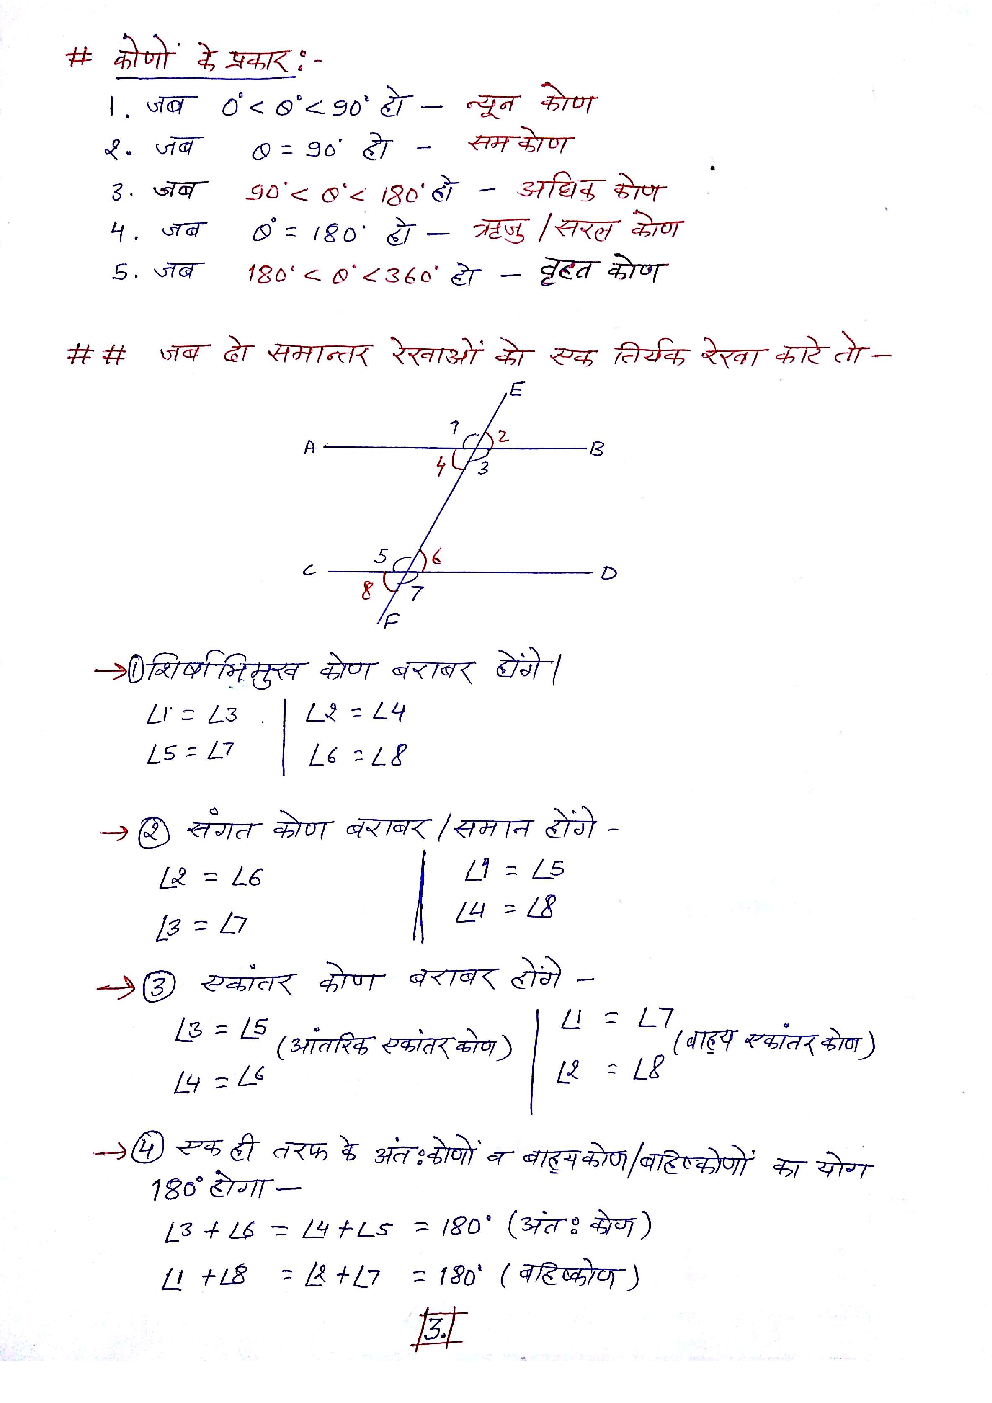 # कोणों के प्रकार :-
1. जब 0° < θ° < 90° हो – न्यून कोण
2. जब θ = 90° हो – सम कोण
3. जब 90° < θ° < 180° हो – अधिक कोण
4. जब θ° = 180° हो – ऋजु / सरल कोण
5. जब 180° < θ° < 360° हो – वृहत कोण
## जब दो समान्तर रेखाओं को एक तिर्यक रेखा काटे तो –
E
1 2
A B
4 3
5 6
C D
8 7
F
→ ① शिर्षाभिमुख कोण बराबर होंगे।
∠1 = ∠3 | ∠2 = ∠4
∠5 = ∠7 | ∠6 = ∠8
→ ② संगत कोण बराबर / समान होंगे –
∠2 = ∠6 | ∠1 = ∠5
∠3 = ∠7 | ∠4 = ∠8
→ ③ एकांतर कोण बराबर होंगे –
∠3 = ∠5 | ∠1 = ∠7
(आंतरिक एकांतर कोण) (बाह्य एकांतर कोण)
∠4 = ∠6 | ∠2 = ∠8
→ ④ एक ही तरफ के अंतः कोणों व बाह्यकोण/बहिष्कोणों का योग
180° होगा –
∠3 + ∠6 = ∠4 + ∠5 = 180° (अंतः कोण)
∠1 + ∠8 = ∠2 + ∠7 = 180° (बहिष्कोण)
3.